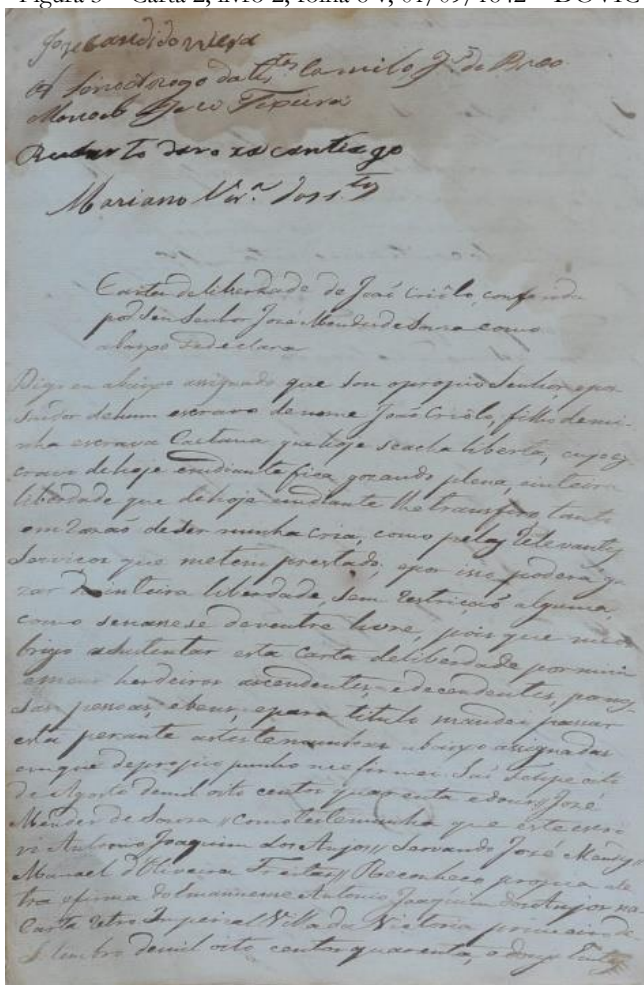 Figura 3 – Carta 2, livro 2, folha 64, 01/09/1842 – DOVIC
Joze Candido
Camilo J.e de
Manoel Teixeira
da roxa cantiago
Mariano
Carta de liberdade de João Criôlo, conferida
por seu Senhor José Mendes de Souza como
abaixo se declara
Digo eu abaixo assignado que sou o proprio Senhor, e pos
suidor de hum escravo de nome João Criôlo, filho de mi-
nha escrava Caetana que hoje se acha liberta, cujo es
cravo de hoje em diante fica gozando plena, e inteira
liberdade que de hoje em diante lhe transfiro, tanto
em razaõ de ser minha cria, como pelos relevantes
servicos que me tem prestado, e por isso poderá go
zar de inteira liberdade, sem restriçaõ alguma,
como se nasese de ventre livre, pois que me o
brigo a sustentar esta Carta de liberdade por mim
e meus herdeiros ascendentes, e decendentes, por nos
sas pessoas, e bens, e para titulo mandei passar
esta perante as testemunhas abaixo assignadas
em que de proprio punho me firmei. oito
de Agosto de mil oito centos quarenta e dous // José
Mendes de Souza // Como testemunha que este escre
vi Antonio Joaquim dos Anjos // Servando José Mendes //
Manoel d'Oliveira Freitas // Reconheço propria a le
tra e firma do Antonio Joaquim dos Anjos na
Carta retro Imperial Villa da Victoria primeiro de
Setembro de mil oito centos quarenta, e dous